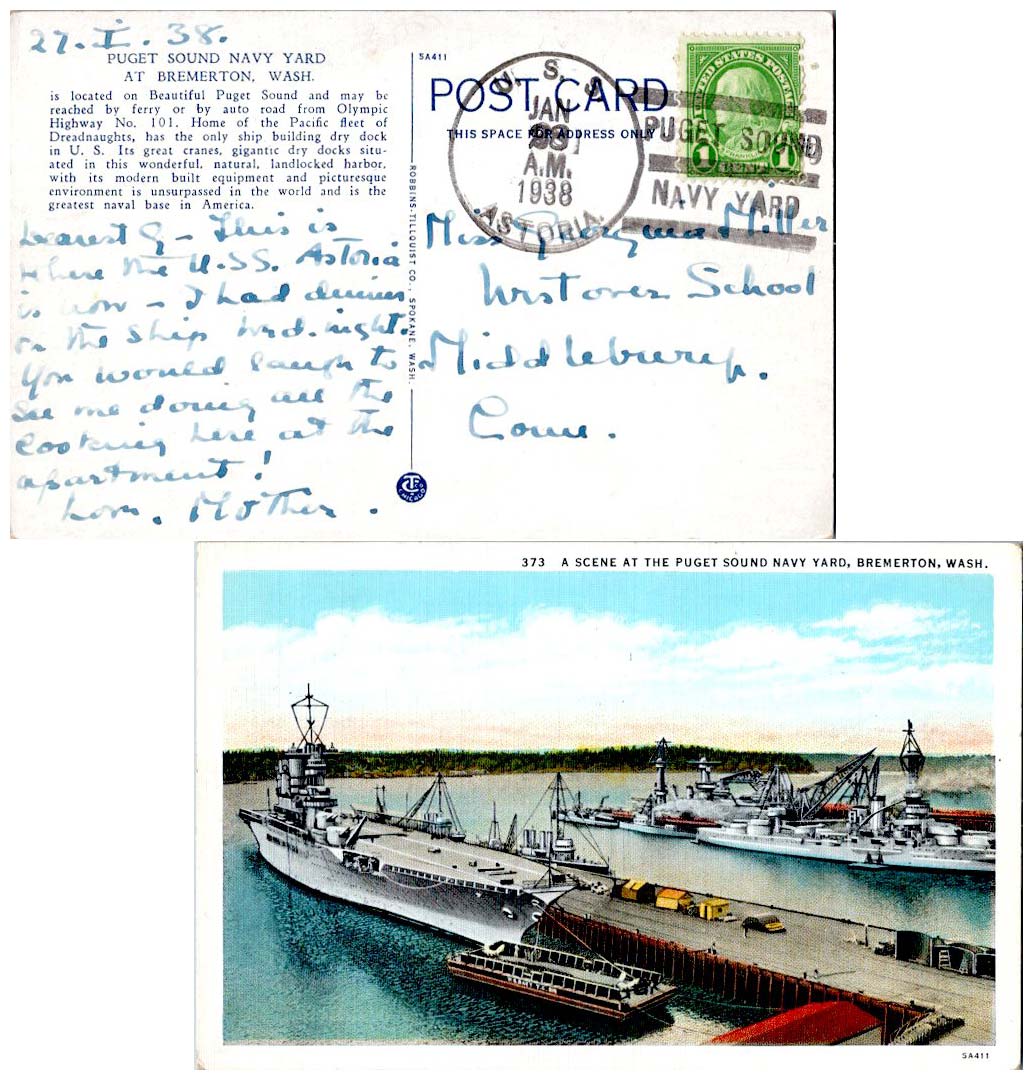 27.I.38.
PUGET SOUND NAVY YARD
AT BREMERTON, WASH.
is located on Beautiful Puget Sound and may be
reached by ferry or by auto road from Olympic
Highway No. 101. Home of the Pacific fleet of
Dreadnaughts, has the only ship building dry dock
in U. S. Its great cranes, gigantic dry docks situ-
ated in this wonderful, natural, landlocked harbor,
with its modern built equipment and picturesque
environment is unsurpassed in the world and is the
greatest naval base in America.
Dearest G - This is
where the U.S.S. Astoria
is now - I had dinner
on the ship Wed. night.
You would laugh to
see me doing all the
cooking here at the
apartment!
Love, Mother.
5A411
POST CARD
THIS SPACE FOR ADDRESS ONLY
ROBBINS-TILLQUIST CO., SPOKANE, WASH.
U. S. S.
JAN
A.M.
1938
ASTORIA.
UNITED STATES POSTAGE
FRANKLIN
1 CENT 1
PUGET SOUND
NAVY YARD
Miss Georgiana Miller
Westover School
Middlebury.
Conn.
CHICAGO
373 A SCENE AT THE PUGET SOUND NAVY YARD, BREMERTON, WASH.
5A411